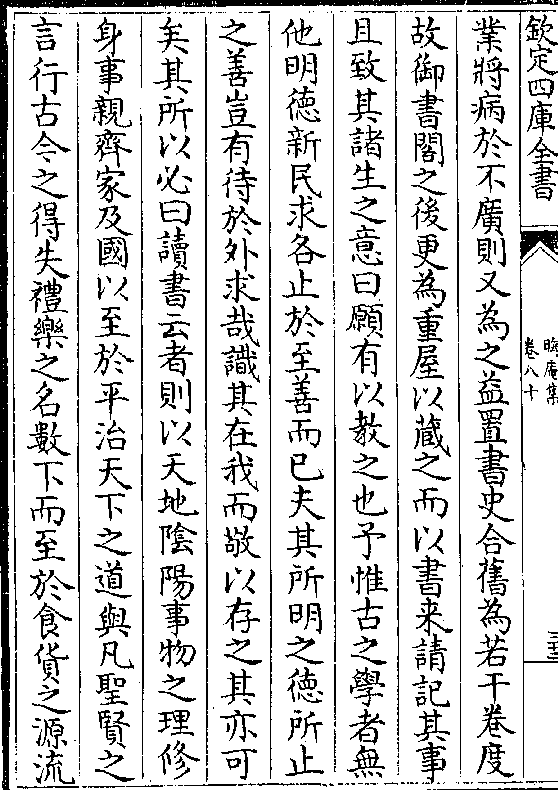 欽定四庫全書
晦庵集
卷八十
三三
業將病於不廣則又為之益置書史合舊為若干卷度
故御書閣之後更為重屋以蔵之而以書来請記其事
且致其諸生之意曰願有以教之也予惟古之學者無
他明徳新民求各止於至善而已夫其所明之徳所止
之善豈有待於外求哉識其在我而敬以存之其亦可
矣其所以必曰讀書云者則以天地陰陽事物之理修
身事親齊家及國以至於平治天下之道與凡聖賢之
言行古今之得失禮樂之名數下而至於食貨之源流